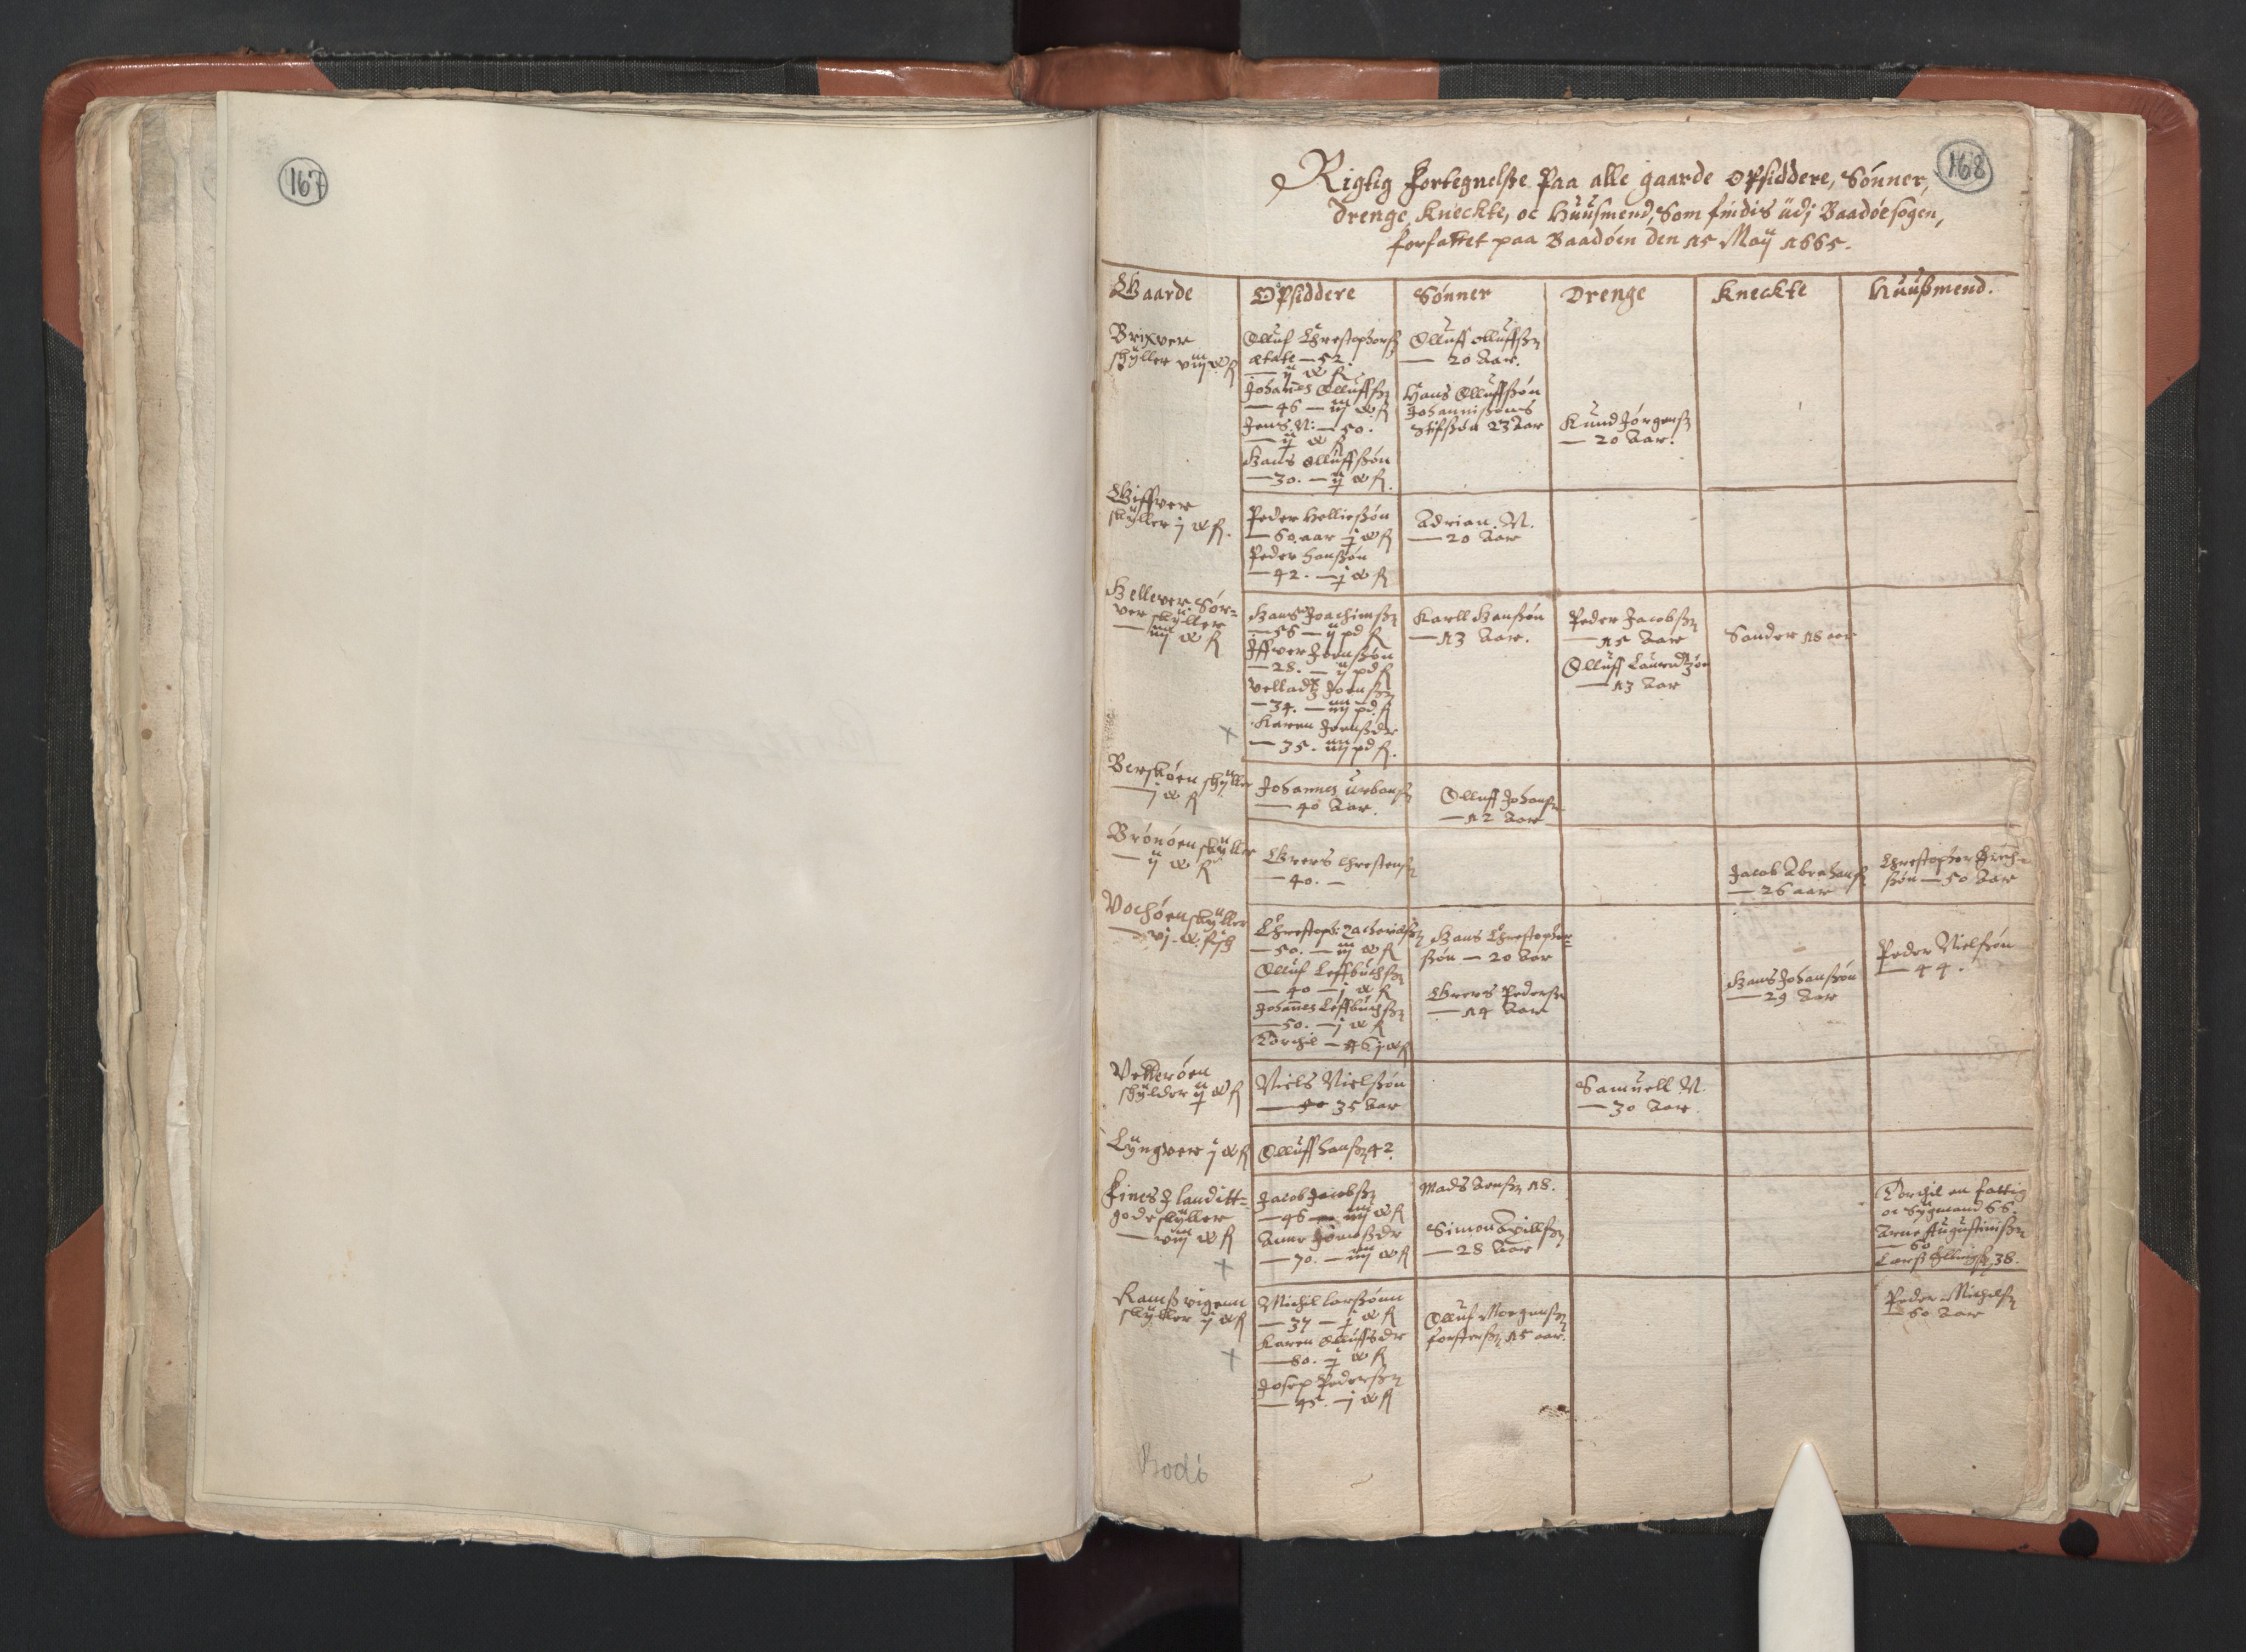 167
168
Rigtig Fortegnelße Paa alle gaarde Opsiddere, Sønner,
Drenge, Kneckte, oc Huusmend, Som findis udj Baadøesogen,
forfattet paa Baadøen den 15 Maij 1665.
Gaarde
Opsiddere
Sønner
Drenge
Kneckte
Huußmend.
Brixver
skyller viij W f
Olluf Christophersß
ætate — 52.
— ij W f
Johannes Olluffß
— 46 — iij W f
Jens N: — 50.
— ij W f
Hans Olluffßøn
— 30. — ij W f
Olluff olluffß
— 20 Aar.
Hans Olluffßøn
Johannißøns
Stifsøn 23 Aar
Knud Jørgenß
— 20 Aar.
Giffver
skyller ij W f.
Peder Helließøn
— 60. aar j W f
Peder Hanßøn
— 42. — j W f
Adrian. N.
— 20 Aar
Hellever. Sør=
ver skyller
— W f
Hans Joachimß
— 56 — ij pd f
Iffver Jenßøn
— 28. — ij pd f
Velladtz Joenß
— 34. — iiij pd f
Karen Jensdr
— 35. iiij pd f.
Karll Hanßøn
— 13 Aar.
Peder Jacobß
— 15 Aar
Olluff Lauridtzøn
— 13 Aar
Sander 18 aar
Berskøen skyller
— j W f
Johannes Urbanß
— 40 Aar.
Olluff Johanß
— 12 Aar
Brønøen skyller
— ij W f
Greers Christenß
— 40. —
Jacob Abrahamß
— 26 aar
Christopher
ßøn — 50 Aar
Vochøen skyller
— vj W f
Christoph: Zachariæß
— 50. — iij W f
Olluf Leffbuchß
— 40 — j W f
Johannes Leffbuchß
— 50. — j W f
Torchil — 46 j W f
Hans Christopher=
ßøn — 20 Aar
Greers Pederß
— 14 Aar
Hans Johanßøn
— 29 Aar
Peder Nielßøn
— 44.
Vetterøen
skylder ij W f
Niels Nielßøn
— 35 Aar
Samuell N.
— 30 Aar.
Lyngver j W f
Olluff Hanß 42.
Fines J landitt=
gode skyller
— viij W f
Jacob Jacobß
— 46 — iiij W f
Anne Jonßdr
— 70. — iiij W f
Mads Arnß 18.
Simon
— 28 Aar
Torchil en fattig
oc Sygmand 66.
Arne Augustinusß
— 60
Larß 38.
Ramßvigenn
skyller ij W f
Michil Larßønn
— 37 — j W f
Karen Olluffsdr
— 80. j W f
Josep Pederß
— 45. — j W f
Olluf Mogenß
fosterß 15 aar.
Peder Michelß
— 60 Aar
Bodö